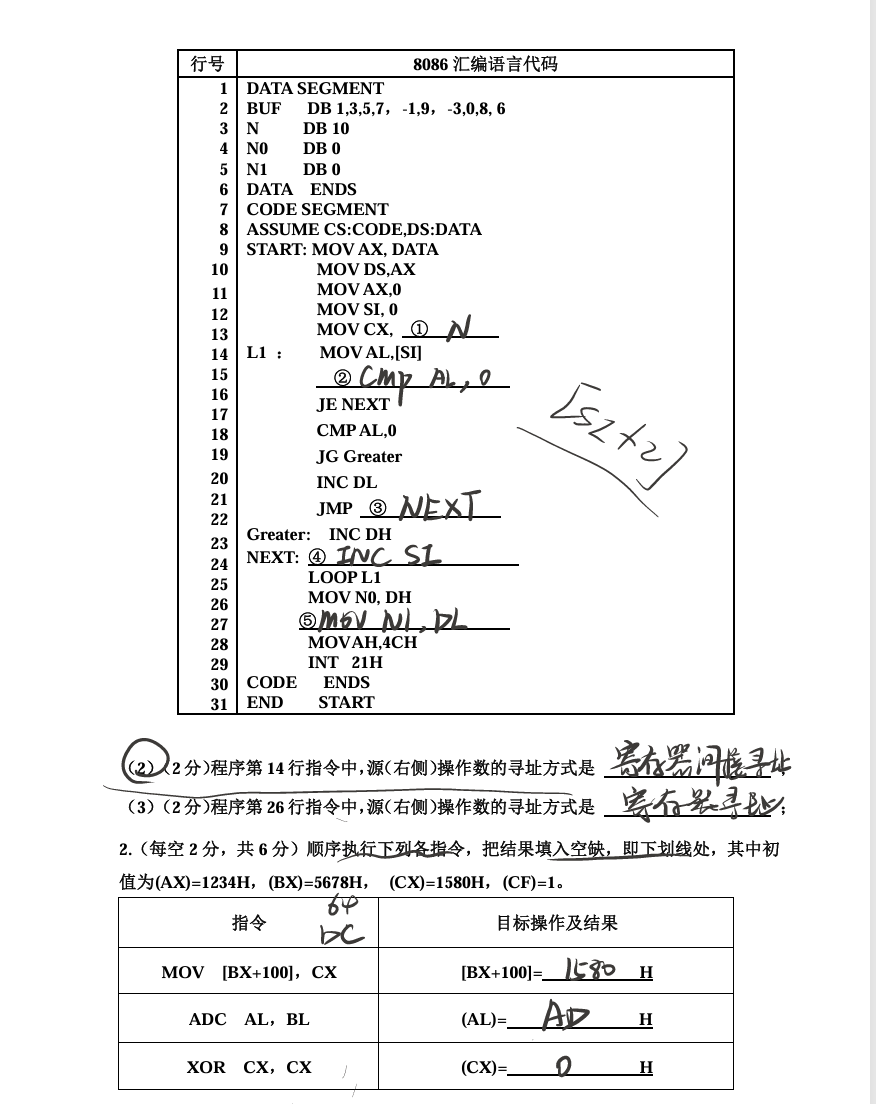 行号 8086 汇编语言代码
1 DATA SEGMENT
2 BUF DB 1,3,5,7，-1,9，-3,0,8, 6
3 N DB 10
4 N0 DB 0
5 N1 DB 0
6 DATA ENDS
7 CODE SEGMENT
8 ASSUME CS:CODE,DS:DATA
9 START: MOV AX, DATA
10 MOV DS,AX
11 MOV AX,0
12 MOV SI, 0
13 MOV CX, ① N
14 L1 ： MOV AL,[SI]
15 ② CMP AL, 0
16
17 JE NEXT
18 CMP AL,0
19 JG Greater
20 INC DL
21 JMP ③ NEXT
22
23 Greater: INC DH
24 NEXT: ④ INC SI
25 LOOP L1
26 MOV N0, DH
27 ⑤ MOV N1, DL
28 MOV AH,4CH
29 INT 21H
30 CODE ENDS
31 END START
[SI+2]
（2）（2 分）程序第 14 行指令中，源（右侧）操作数的寻址方式是 寄存器间接寻址
（3）（2 分）程序第 26 行指令中，源（右侧）操作数的寻址方式是 寄存器寻址；
2.（每空 2 分，共 6 分）顺序执行下列各指令，把结果填入空缺，即下划线处，其中初
值为(AX)=1234H，(BX)=5678H， (CX)=1580H，(CF)=1。
64
指令 DC 目标操作及结果
MOV [BX+100]，CX [BX+100]= 1580 H
ADC AL，BL (AL)= AD H
XOR CX，CX (CX)= 0 H